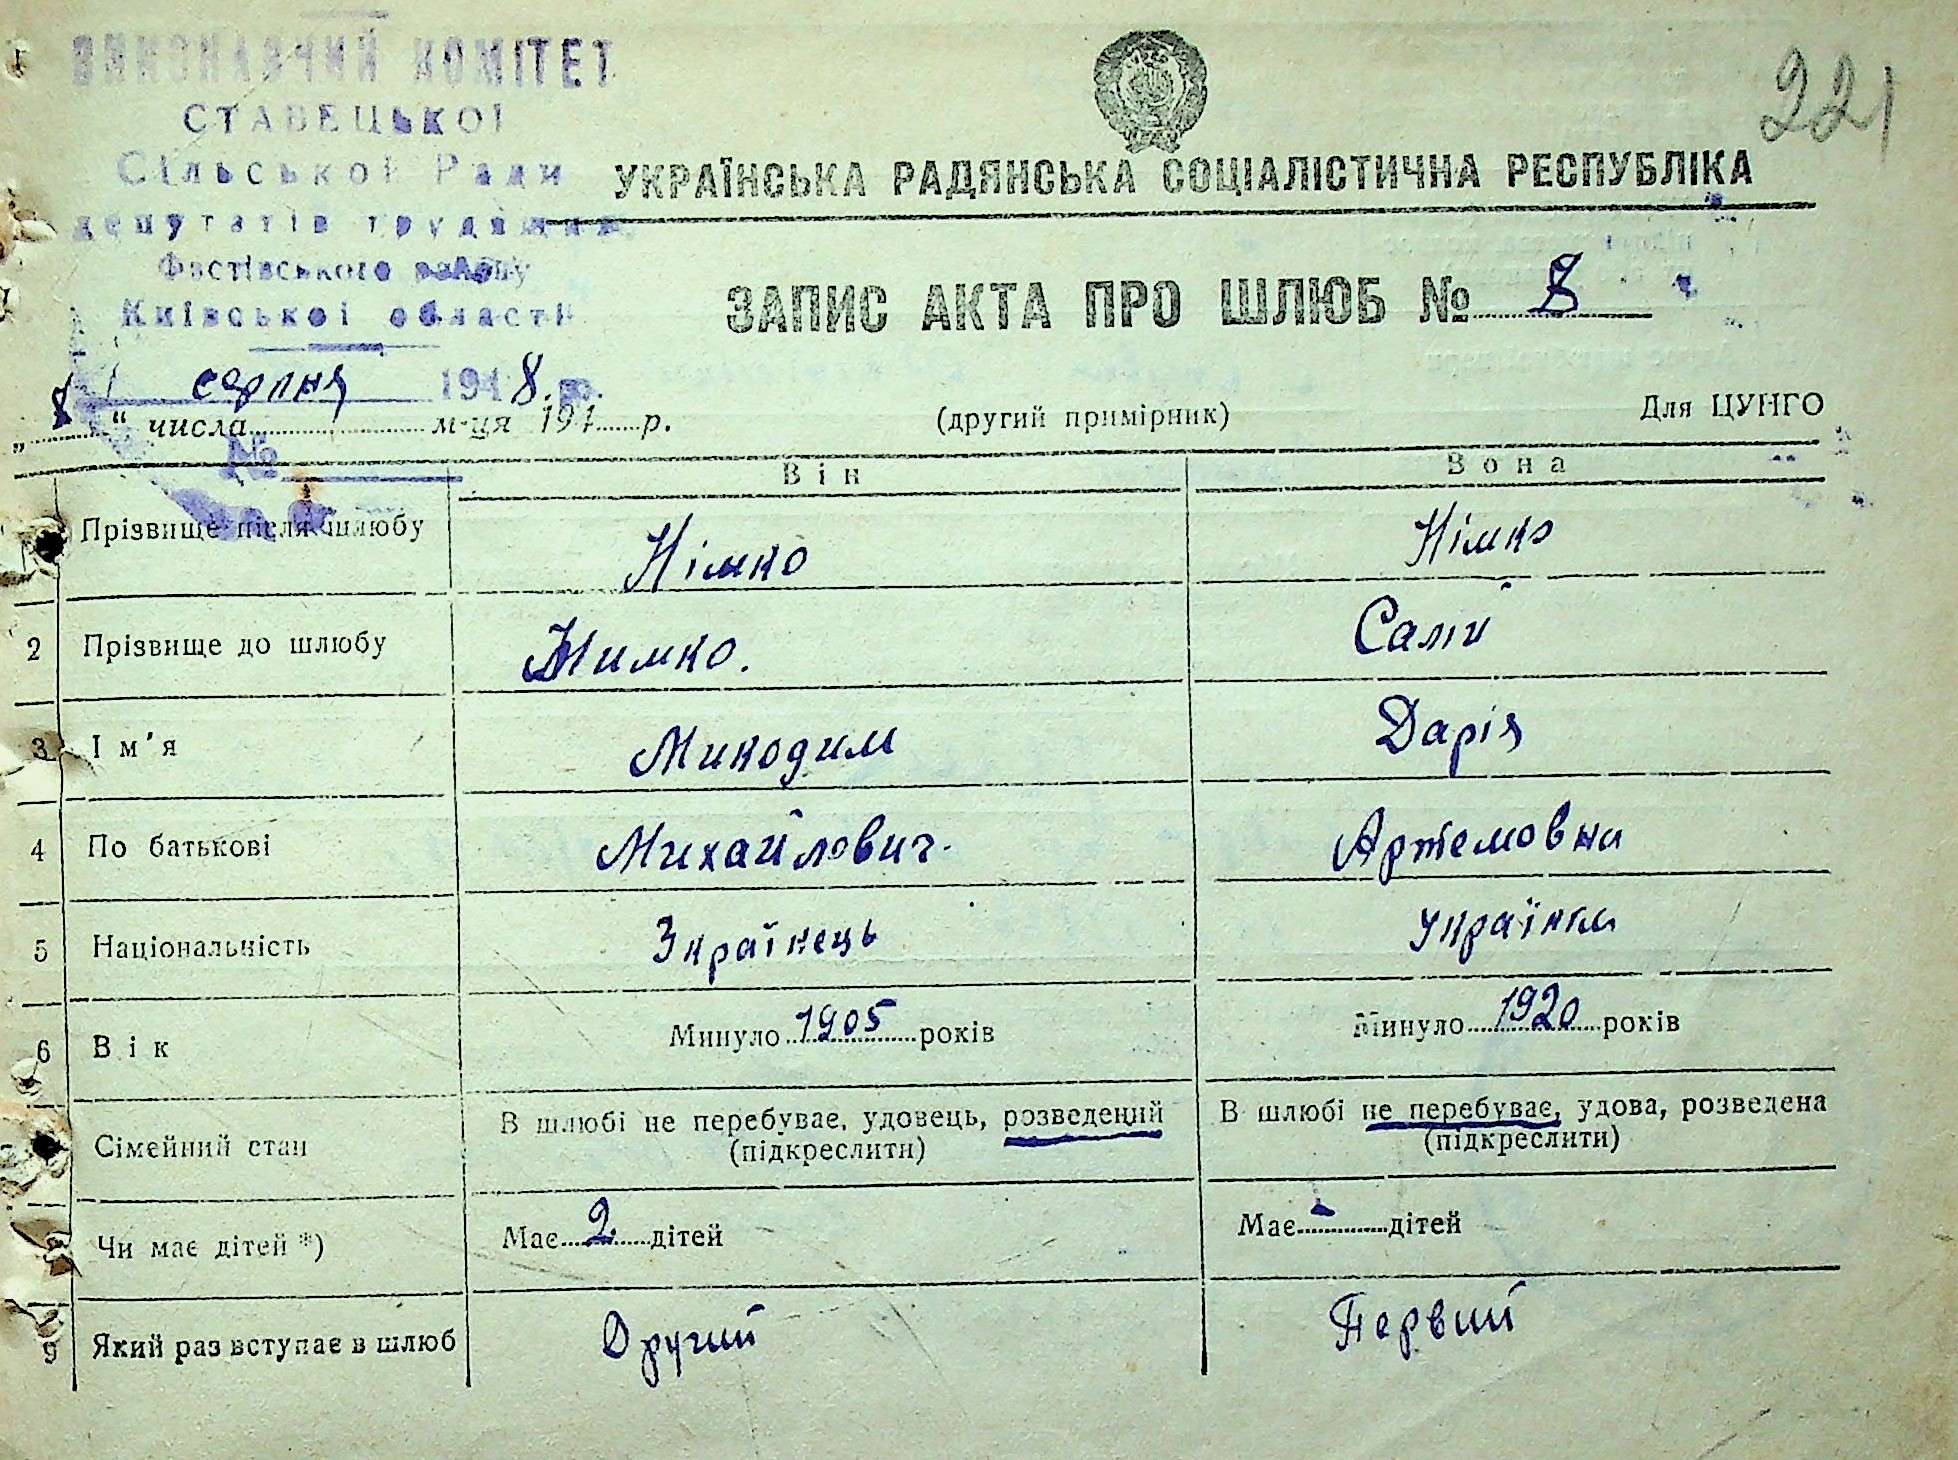 221
ВИКОНАВЧИЙ КОМІТЕТ
СТАВЕЦЬКОЇ
Сільської Ради
депутатів трудящих
Фастівського району
Київської області
УКРАЇНСЬКА РАДЯНСЬКА СОЦІАЛІСТИЧНА РЕСПУБЛІКА
ЗАПИС АКТА ПРО ШЛЮБ № 8
серпня 1948 р.
„8“ числа м-ця 194 р. (другий примірник) Для ЦУНГО
№
Він Вона
Прізвище після шлюбу Німко Німко
2 Прізвище до шлюбу Нимко. Самій
3 Ім'я Микодим Дарія
4 По батькові Михайлович. Артемовна
5 Національність Україкець Українка
6 Вік Минуло 1905 років Минуло 1920 років
Сімейний стан В шлюбі не перебуває, удовець, розведений В шлюбі не перебуває, удова, розведена
(підкреслити) (підкреслити)
Чи має дітей *) Має 2. дітей Має - дітей
9 Який раз вступає в шлюб Другий Первий